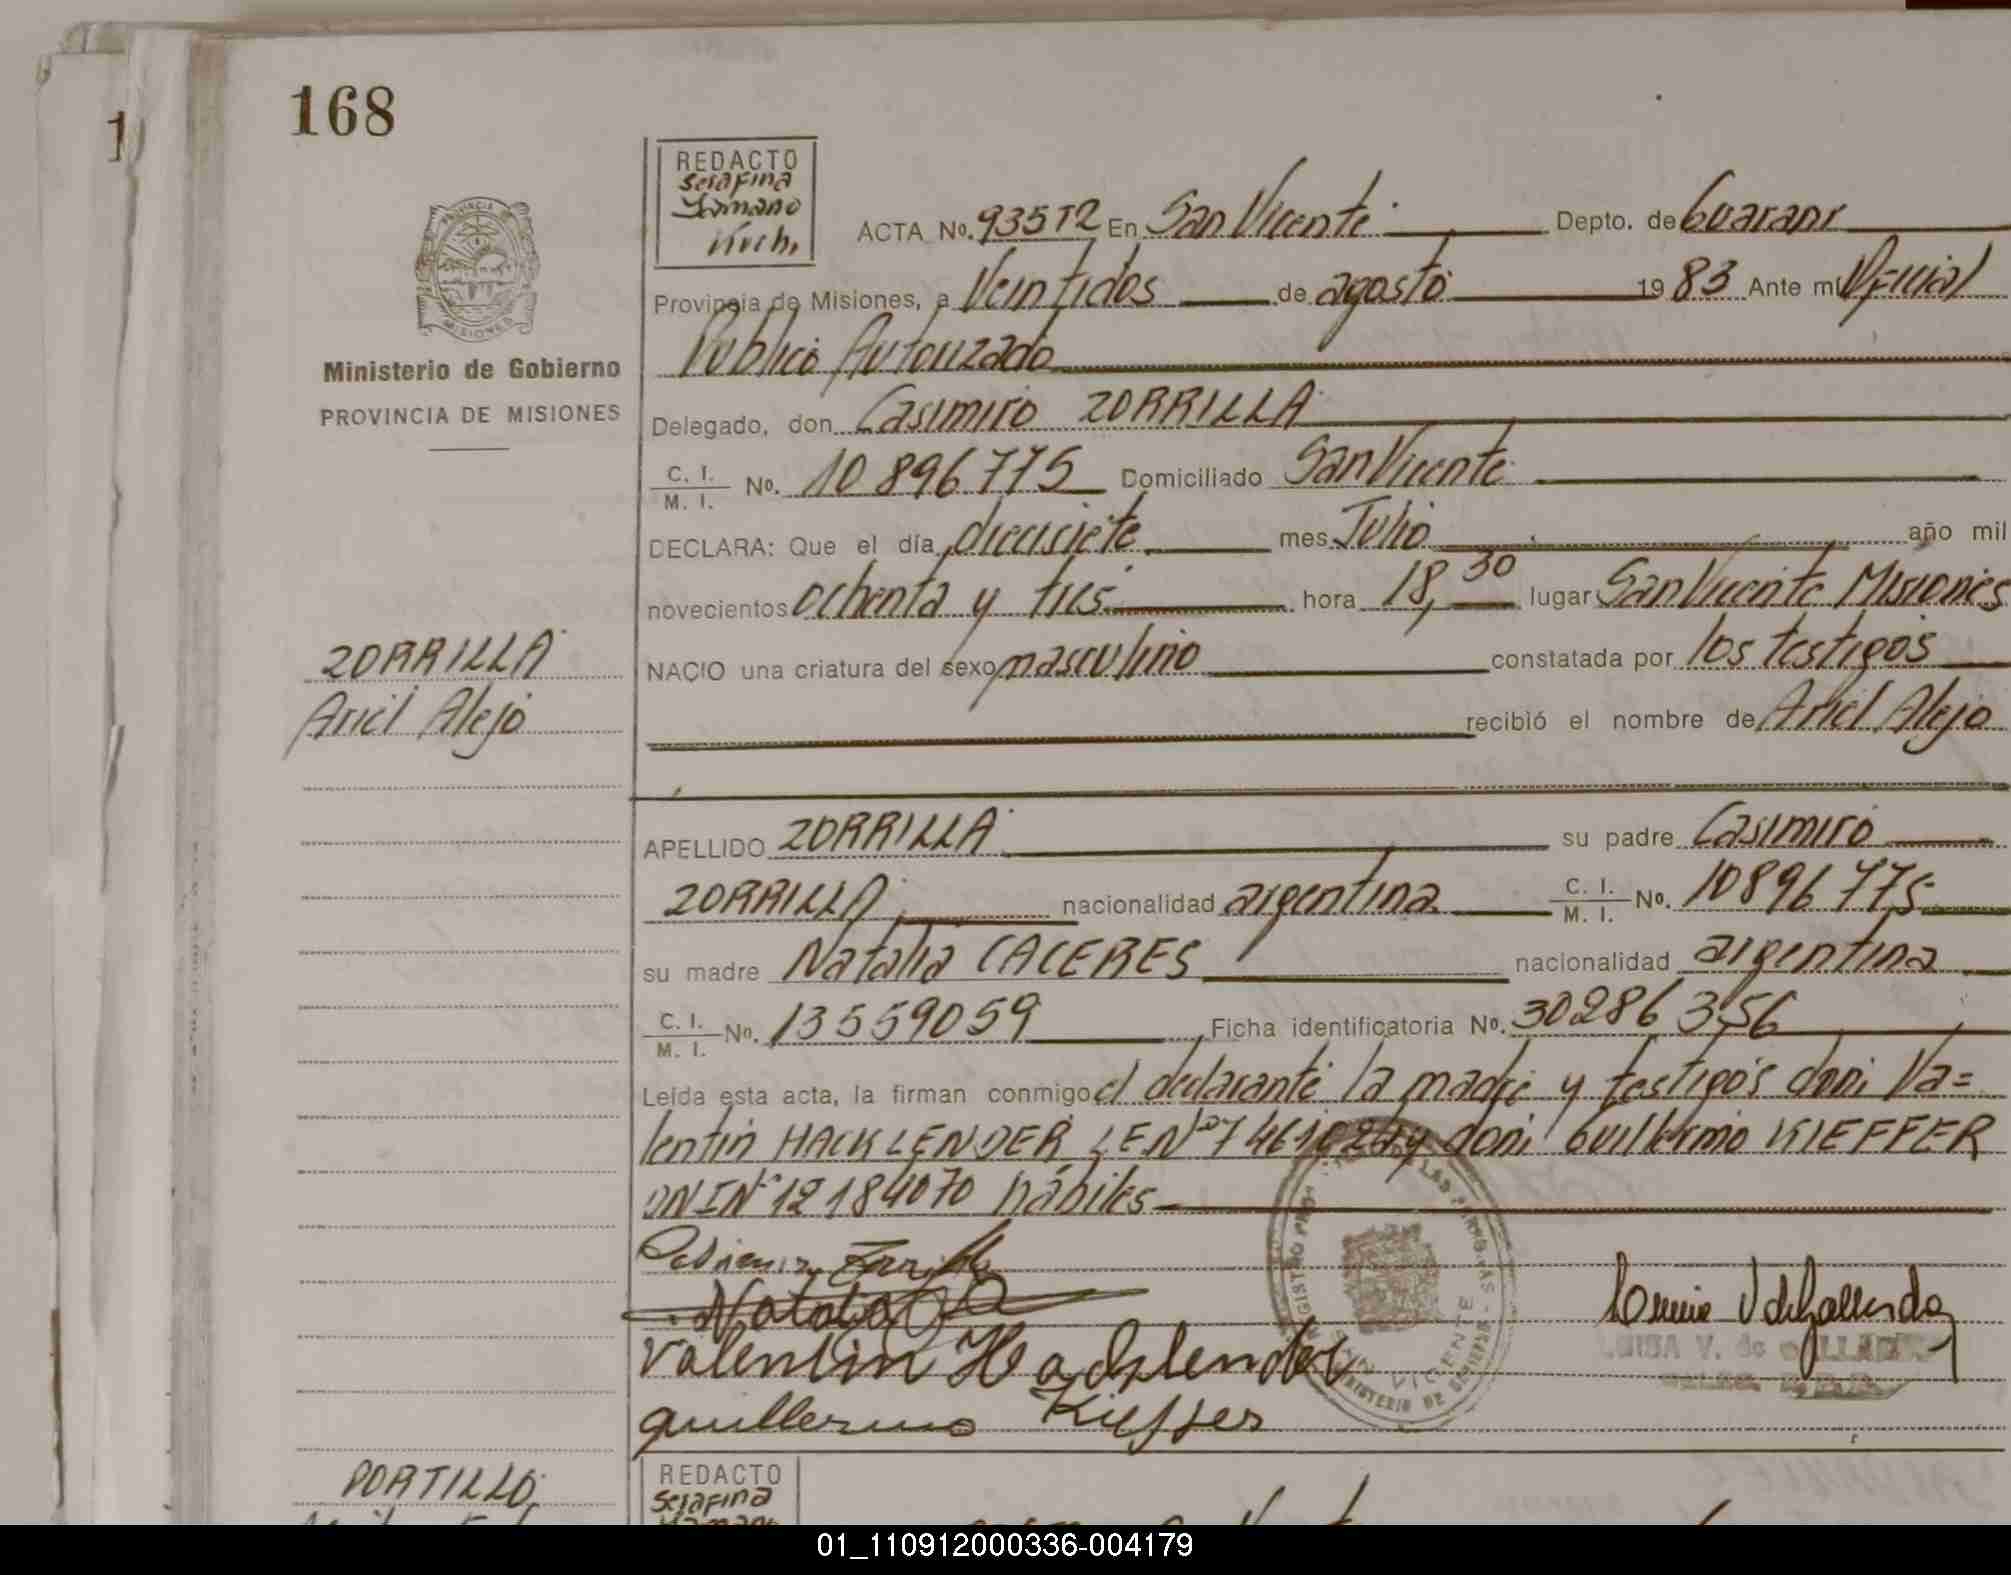 168
1
REDACTO
Serafina
Kuch.
ACTA No. 935T2 En San Vicente Depto. de Guaraní
Provincia de Misiones, a Veintidos de agosto 1983 Ante mi Oficial
Publico Autorizado
Ministerio de Gobierno
PROVINCIA DE MISIONES
PROVINCIA DE
MISIONES
Delegado, don Casimiro ZORRILLA
C. I.
M. I. No. 10 896 775 Domiciliado San Vicente
DECLARA: Que el día diecisiete mes Julio año mil
novecientos ochenta y tres hora 18,30 lugar San Vicente Misiones
ZORRILLA
Ariel Alejo
NACIO una criatura del sexo masculino constatada por los testigos
recibió el nombre de Ariel Alejo
APELLIDO ZORRILLA su padre Casimiro
ZORRILLA nacionalidad argentina C. I.
M. I. No. 10896775
su madre Natalia CACERES nacionalidad argentina
C. I.
M. I. No. 13559059 Ficha identificatoria No. 30286356
Leída esta acta, la firman conmigo el declarante la madre y testigos don: Va=
lentin HACKLENDER LE Nº 7461027 y don: Guillermo KIEFFER
DNI Nº 12184070 hábiles
Valentin Hacklender
guillermo Kieffer
SAN VICENTE
LUISA V. de GALLARDO
PORTILLO
REDACTO
Serafina
01_110912000336-004179